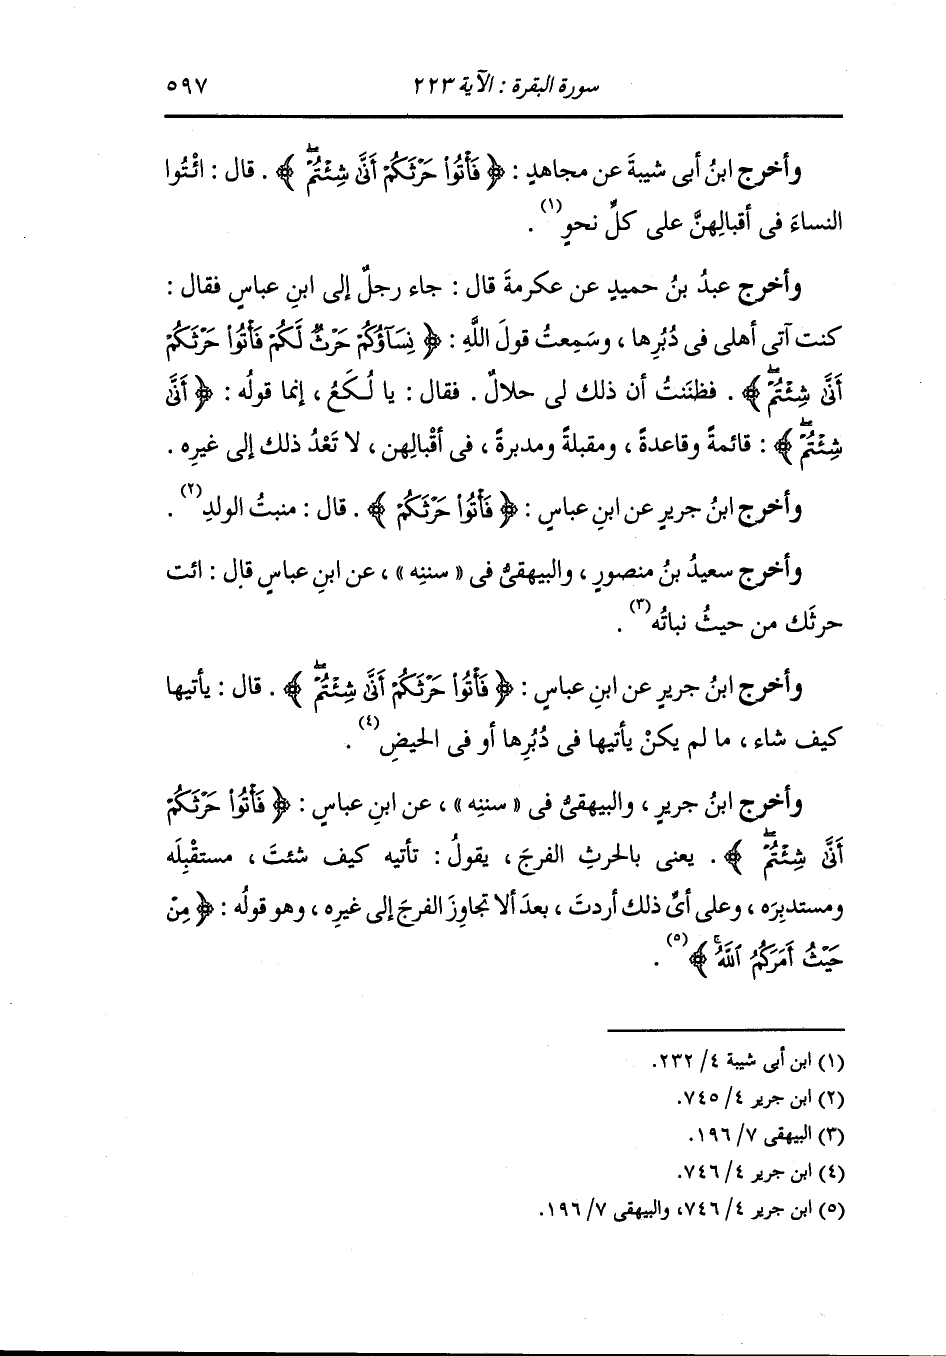 سورة البقرة : الآية ٢٢٣ ٥٩٧
وأخرج ابنُ أبى شيبةَ عن مجاهدٍ : ﴿ فَأْتُوا۟ حَرْثَكُمْ أَنَّىٰ شِئْتُمْۖ ﴾ . قال : ائْتُوا
النساءَ فى أقبالِهنَّ على كلِّ نحوٍ(١) .
وأخرج عبدُ بنُ حميدٍ عن عكرمةَ قال : جاء رجلٌ إلى ابنِ عباسٍ فقال :
كنت آتى أهلى فى دُبُرِها ، وسَمِعتُ قولَ اللَّهِ : ﴿ نِسَآؤُكُمْ حَرْثٌ لَّكُمْ فَأْتُوا۟ حَرْثَكُمْ
أَنَّىٰ شِئْتُمْۖ ﴾ . فظنَنتُ أن ذلك لى حلالٌ . فقال : يا لُكَعُ ، إنما قولُه : ﴿ أَنَّىٰ
شِئْتُمْۖ ﴾ : قائمةً وقاعدةً ، ومقبلةً ومدبرةً ، فى أقْبالِهن ، لا تَعْدُ ذلك إلى غيرِه .
وأخرج ابنُ جريرٍ عن ابنِ عباسٍ : ﴿ فَأْتُوا۟ حَرْثَكُمْ ﴾ . قال : منبتُ الولدِ(٢) .
وأخرج سعيدُ بنُ منصورٍ ، والبيهقىُّ فى « سننِه » ، عن ابنِ عباسٍ قال : ائت
حرثَك من حيثُ نباتُه(٣) .
وأخرج ابنُ جريرٍ عن ابنِ عباسٍ : ﴿ فَأْتُوا۟ حَرْثَكُمْ أَنَّىٰ شِئْتُمْۖ ﴾ . قال : يأتيها
كيف شاء ، ما لم يكنْ يأتيها فى دُبُرِها أو فى الحيضِ(٤) .
وأخرج ابنُ جريرٍ ، والبيهقىُّ فى « سننِه » ، عن ابنِ عباسٍ : ﴿ فَأْتُوا۟ حَرْثَكُمْ
أَنَّىٰ شِئْتُمْۖ ﴾ . يعنى بالحرثِ الفرجَ ، يقولُ : تأتيه كيف شئتَ ، مستقْبِلَه
ومستدبِرَه ، وعلى أىِّ ذلك أردتَ ، بعدَ ألا تجاوِزَ الفرجَ إلى غيرِه ، وهو قولُه : ﴿ مِنْ
حَيْثُ أَمَرَكُمُ ٱللَّهُۚ ﴾(٥) .
(١) ابن أبى شيبة ٤/ ٢٣٢.
(٢) ابن جرير ٤/ ٧٤٥.
(٣) البيهقى ٧/ ١٩٦.
(٤) ابن جرير ٤/ ٧٤٦.
(٥) ابن جرير ٤/ ٧٤٦، والبيهقى ٧/ ١٩٦.